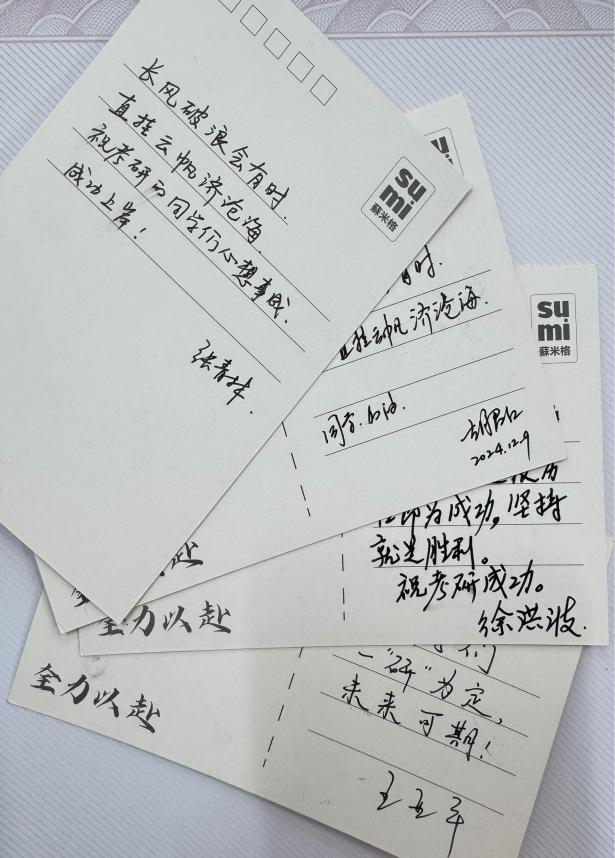 长风破浪会有时.
直挂云帆济沧海
祝考研的同学们心想事成.
成功上岸！
张青林.
su
mi
蘇米格
su
时.
直挂云帆济沧海.
同学加油.
2024.12.9
su
mi
蘇米格
即为成功,坚持
就是胜利。
祝考研成功。
徐洪波.
全力以赴
们
一“研”为定,
未来可期！
王五平
全力以赴